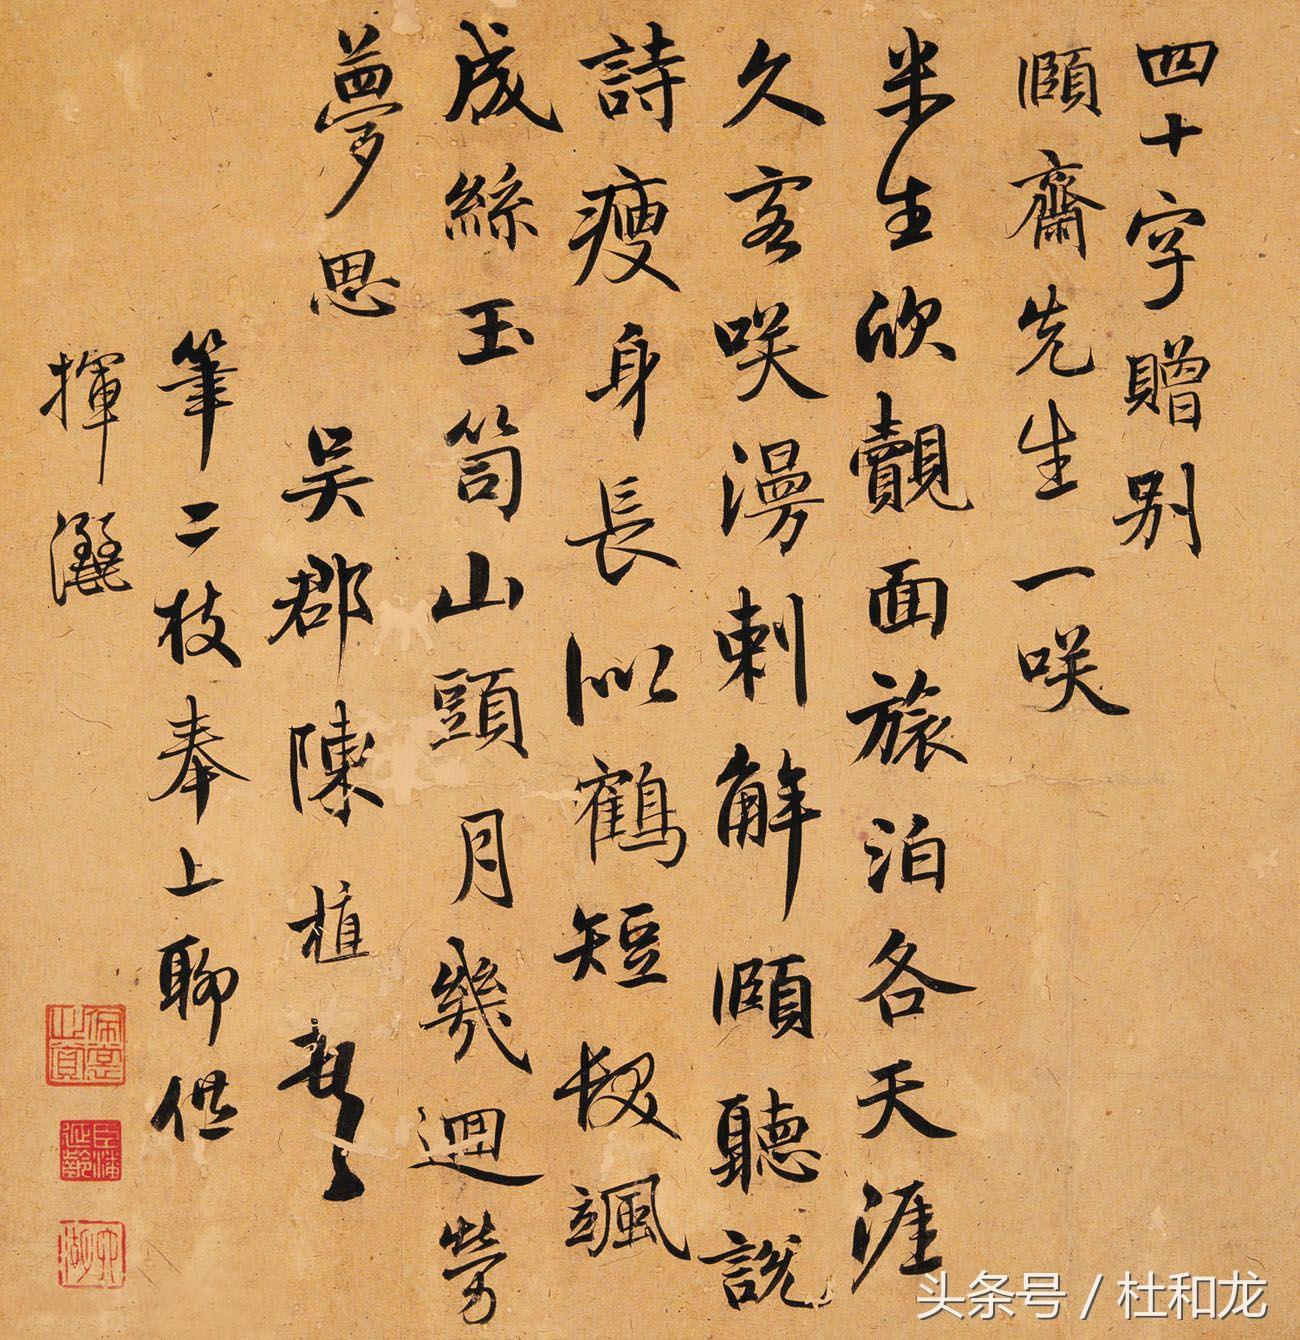 四十字贈别
頤齋先生一咲
半生欣覿面旅泊各天涯
久客咲漫刺解頤聽説
詩瘦身長似鶴短髮颯
成絲玉笥山頭月幾迴勞
夢思
吳郡陳植書
筆二枝奉上聊供
揮灑
臣潘延齡
头条号 / 杜和龙